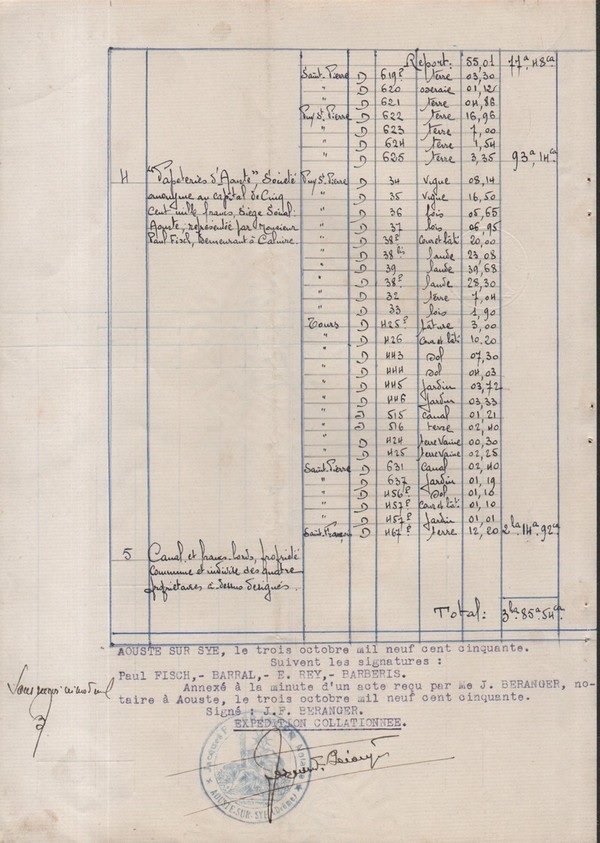 Report: 55,01 77a 48ca
Saint-Pierre D 619p terre 03,30
" D 620 oseraie 01,12
" D 621 terre 04,86
Puy St. Pierre D 622 terre 16,96
" D 623 terre 7,00
" D 624 terre 1,54
" D 625 terre 3,35 93a,14ca
4 "Papeteries d'Aouste", Société Puy St. Pierre D 34 vigne 08,14
anonyme au capital de Cinq " D 35 vigne 16,50
Cent mille francs, Siège Social: " D 36 bois 05,65
Aouste, représentée par Monsieur " D 37 bois 06,95
Paul Fisch, demeurant à Caluire. " D 38p Cour et bâti 20,00
" D 38bis lande 23,08
" D 39 lande 39,68
" D 38p lande 28,30
" D 32 terre 7,04
" D 33 bois 1,90
Tours D 425p Pâture 3,00
" D 426 Cour et bâti 10.20
" D 443 sol 07,30
" D 444 sol 04,03
" D 445 Jardin 03,72
" D 446 Jardin 03,33
" D 515 Canal 01,21
" D 516 terre 02,40
" D 424 terre Vaine 00,30
" D 425 terre Vaine 02,25
Saint-Pierre D 631 Canal 02,40
" D 637 Jardin 01,19
" D 456p Sol 01,10
" D 457p Cour et bâti 01,10
" D 457p Jardin 01,01
Saint-François D 467p terre 12,20 2ha 14a 92ca
5 Canal et francs-bords, propriété
Commune et indivise des quatre
propriétaires ci-dessus désignés.
Total: 3ha 85a 54ca
AOUSTE SUR SYE, le trois octobre mil neuf cent cinquante.
Suivent les signatures :
Paul FISCH,- BARRAL,- E. REY,- BARBERIS.
Annexé à la minute d'un acte reçu par Me J. BERANGER, no-
taire à Aouste, le trois octobre mil neuf cent cinquante.
Signé : J.F. BERANGER.
EXPEDITION COLLATIONNEE.
AOUSTE-SUR-SYE (Drôme)